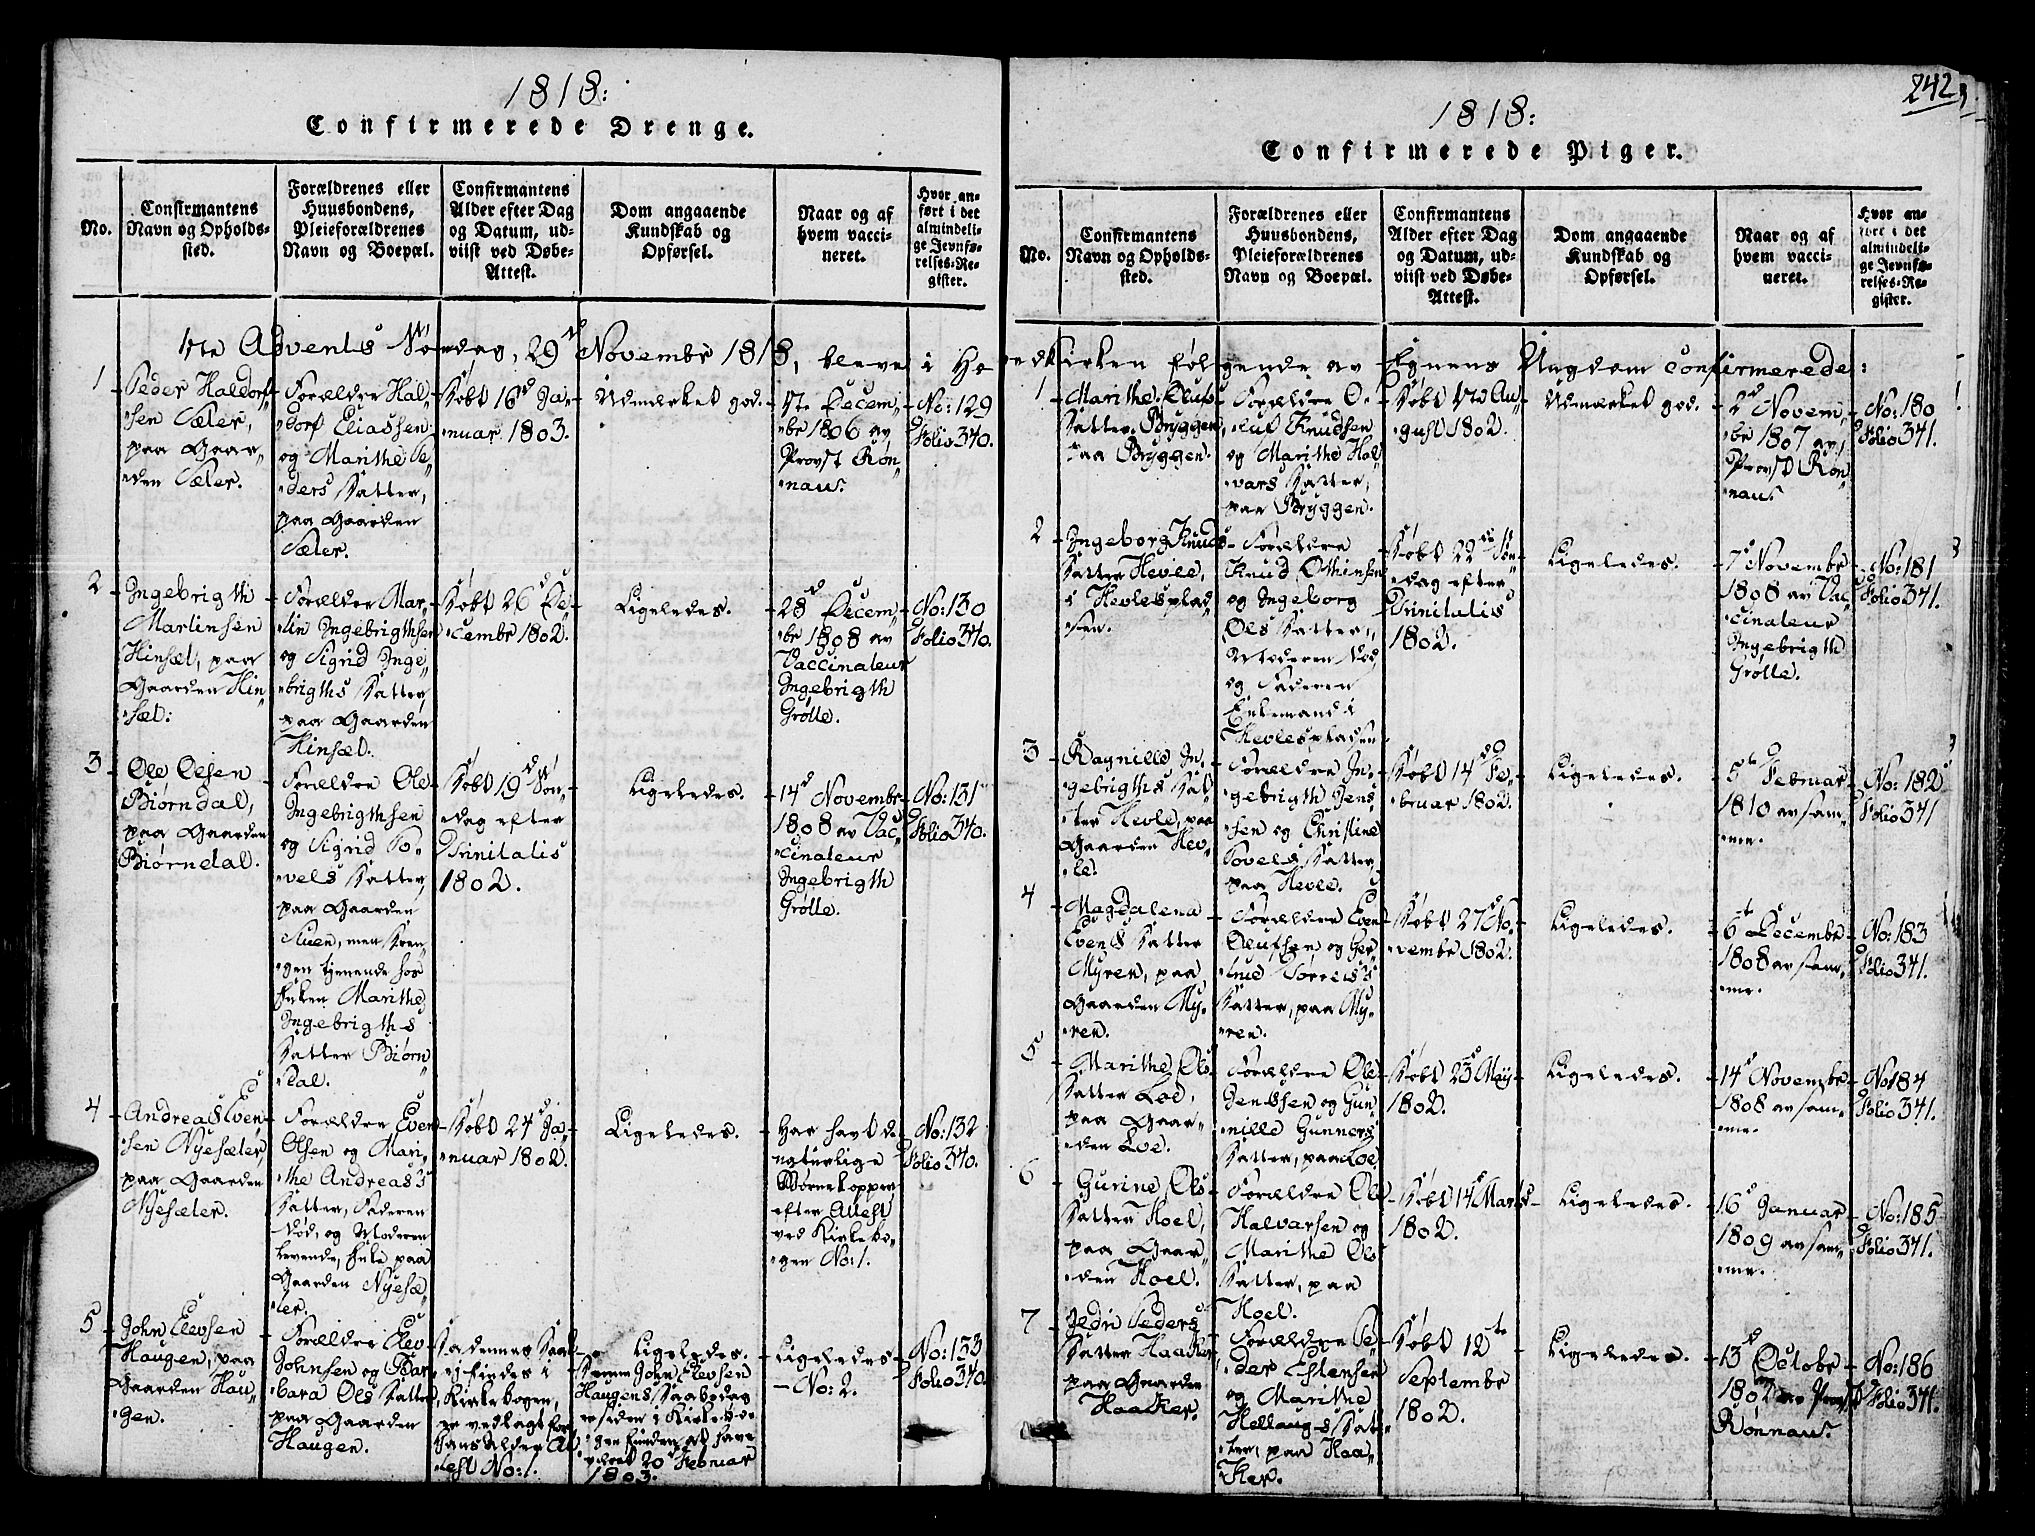 1818:
Confirmerede Drenge.
No.
Confirmantens
Navn og Opholds-
sted.
Forældrenes eller
Huusbondens,
Pleieforældrenes
Navn og Boepæl.
Confirmantens
Alder efter Dag
og Datum, ud-
viist ved Døbe-
Attest.
Dom angaaende
Kundskab og
Opførsel.
Naar og af
hvem vacci-
neret.
Hvor an-
ført i det
almindeli-
ge Jevnfø-
relses-Re-
gister.
1te Advents Søndag, 29d November 1818, bleve i He-
1
Peder Haldorf-
sen Sæter,
paa Gaar-
den Sæter.
Forældre Hal-
dorf Eliassen
og Marithe Pe-
ders Datter,
paa Gaarden
Sæter.
Døbt 16d Ja-
nuar 1803.
Udmærket god.
17te Decem-
br 1806 av
Provst Røn-
nau.
No: 129
Folio 340.
2
Ingebrigth
Martinsen
Hinsæt, paa
Gaarden Hin-
sæt.
Forældre Mar-
tin Ingebrigthsen
og Sigrid Inge-
brigths Datter,
paa Gaarden
Hinsæt.
Døbt 26d De-
cembr 1802.
Ligeledes.
28d Decem-
br 1808 av
Vaccinateur
Ingebrigth
Grötte.
No: 130
Folio 340.
3
Ole Olsen
Biørndal,
paa Gaarden
Biørndal.
Forældre Ole
Ingebrigthsen
og Sigrid Po-
vels Datter,
paa Gaarden
Stuen, men Dren-
gen tjenende hos
Enken Marithe
Ingebrigths
Datter Biørn-
dal.
Døbt 19d Søn-
dag efter
Trinitatis
1802.
Ligeledes.
14d Novembr
1808 av Vac-
cinateur
Ingebrigth
Grötte.
No: 131
Folio 340.
4
Andreas Even-
sen Nyesæter,
paa Gaarden
Nyesæter.
Forældre Even
Olsen og Mari-
the Andreas
Datter, Faderen
død, og Moderen
levende, Enke paa
Gaarden Nyesæ-
ter.
Døbt 24d Ja-
nuar 1802.
Ligeledes.
Har havt de
naturlige
Børnekopper
efter Attest
ved Kirkebo-
gen No: 1.
No: 132
Folio 340.
5
John Elevsen
Haugen, paa
Gaarden Hau-
gen.
Forældre Elev
Johnsen og Bar-
bara Ols Datter
paa Gaarden
Haugen.
ej findes i
Kirkebogen,
hans Alder At-
test No: 1.
Ligeledes.
John Elevsen
Haugens Daabsdag
er siden i Kirkebo-
gen funden at have
været 20d Februar
1803.
Ligeledes
No: 2.
No: 133
Folio 340.
242
1818:
Confirmerede Piger.
No.
Confirmantens
Navn og Opholds-
sted.
Forældrenes eller
Huusbondens,
Pleieforældrenes
Navn og Boepæl.
Confirmantens
Alder efter Dag
og Datum, ud-
viist ved Døbe-
Attest.
Dom angaaende
Kundskab og
Opførsel.
Naar og af
hvem vacci-
neret.
Hvor an-
ført i det
almindeli-
ge Jevnfø-
relses-Re-
gister.
ne Kirken følgende av Egnens Ungdom confirmerede:
1
Marithe Olufs
Datter Bryggen
paa Bryggen.
Forældre O-
luf Knudsen
og Marithe Hal-
vars Datter,
paa Bryggen.
Døbt 17d Au-
gust 1802.
Udmærket god.
2d Novem-
br 1807 av
Provst Røn-
nau.
No: 180
Folio 341.
2
Ingeborg Knuds
Datter Hevle,
i Hevlesplad-
sen.
Forældre
Knud Othinsen
og Ingeborg
Ols Datter,
Moderen død,
og Faderen
Enkemand i
Hevlespladsen.
Døbt 22de Søn-
dag efter
Trinitatis
1802.
Ligeledes.
7d Novembr
1808 av Vac-
cinateur
Ingebrigth
Grötte.
No: 181
Folio 341.
3
Ragnille In-
gebrigths Dat-
ter Hevle, paa
Gaarden Hev-
le.
Forældre In-
gebrigth Jens-
sen og Christine
Povels Datter,
paa Hevle.
Døbt 14d Fe-
bruar 1802.
Ligeledes.
5te Februar
1810 av sam-
me.
No: 182
Folio 341
4
Magdalena
Evens Datter
Myren, paa
Gaarden My-
ren.
Forældre Even
Olufsen og Ger-
trud Torreis
Datter, paa My-
ren.
Døbt 27d No-
vembr 1802.
Ligeledes.
6te Decembr
1808 av sam-
me.
No: 183
Folio 341.
5
Marithe Ols
Datter Loe,
paa Gaar-
den Loe.
Forældre Ole
Jenssen og Gun-
nille Gunners
Datter, paa Loe
Døbt 23d May
1802.
Ligeledes.
14d Novembr
1808 av sam-
me.
No: 184
Folio 341.
6
Gurine Ols
Datter Hoel,
paa Gaar-
den Hoel.
Forældre Ole
Halvarsen og
Marithe Ols
Datter, paa
Hoel.
Døbt 14d Marts
1802.
Ligeledes.
16d Januar
1809 av sam-
me.
No: 185
Folio 341.
7
Peders
Datter Haaker
paa Gaarden
Haaker.
Forældre Pe-
der Estensen
og Marithe
Hellaugs Dat-
ter, paa Haa-
ker.
Døbt 12te
Septembr
1802.
Ligeledes.
13d Octobr
1802 av Provst
Rønnau.
No: 186
Folio 341.